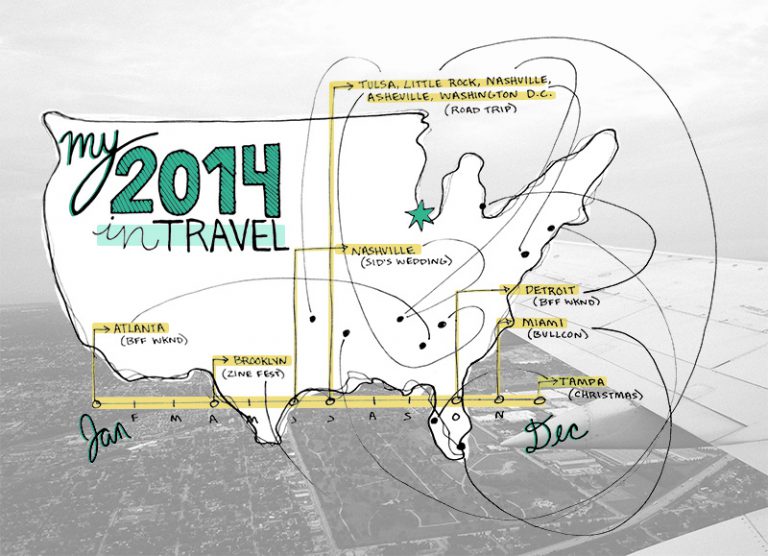 my
2014
in TRAVEL
TULSA, LITTLE ROCK, NASHVILLE,
ASHEVILLE, WASHINGTON D.C.
(ROAD TRIP)
NASHVILLE
(SID'S WEDDING)
DETROIT
(BFF WKND)
ATLANTA
(BFF WKND)
MIAMI
(BULLCON)
BROOKLYN
(ZINE FEST)
TAMPA
(CHRISTMAS)
Jan F M A M J J A S O N Dec